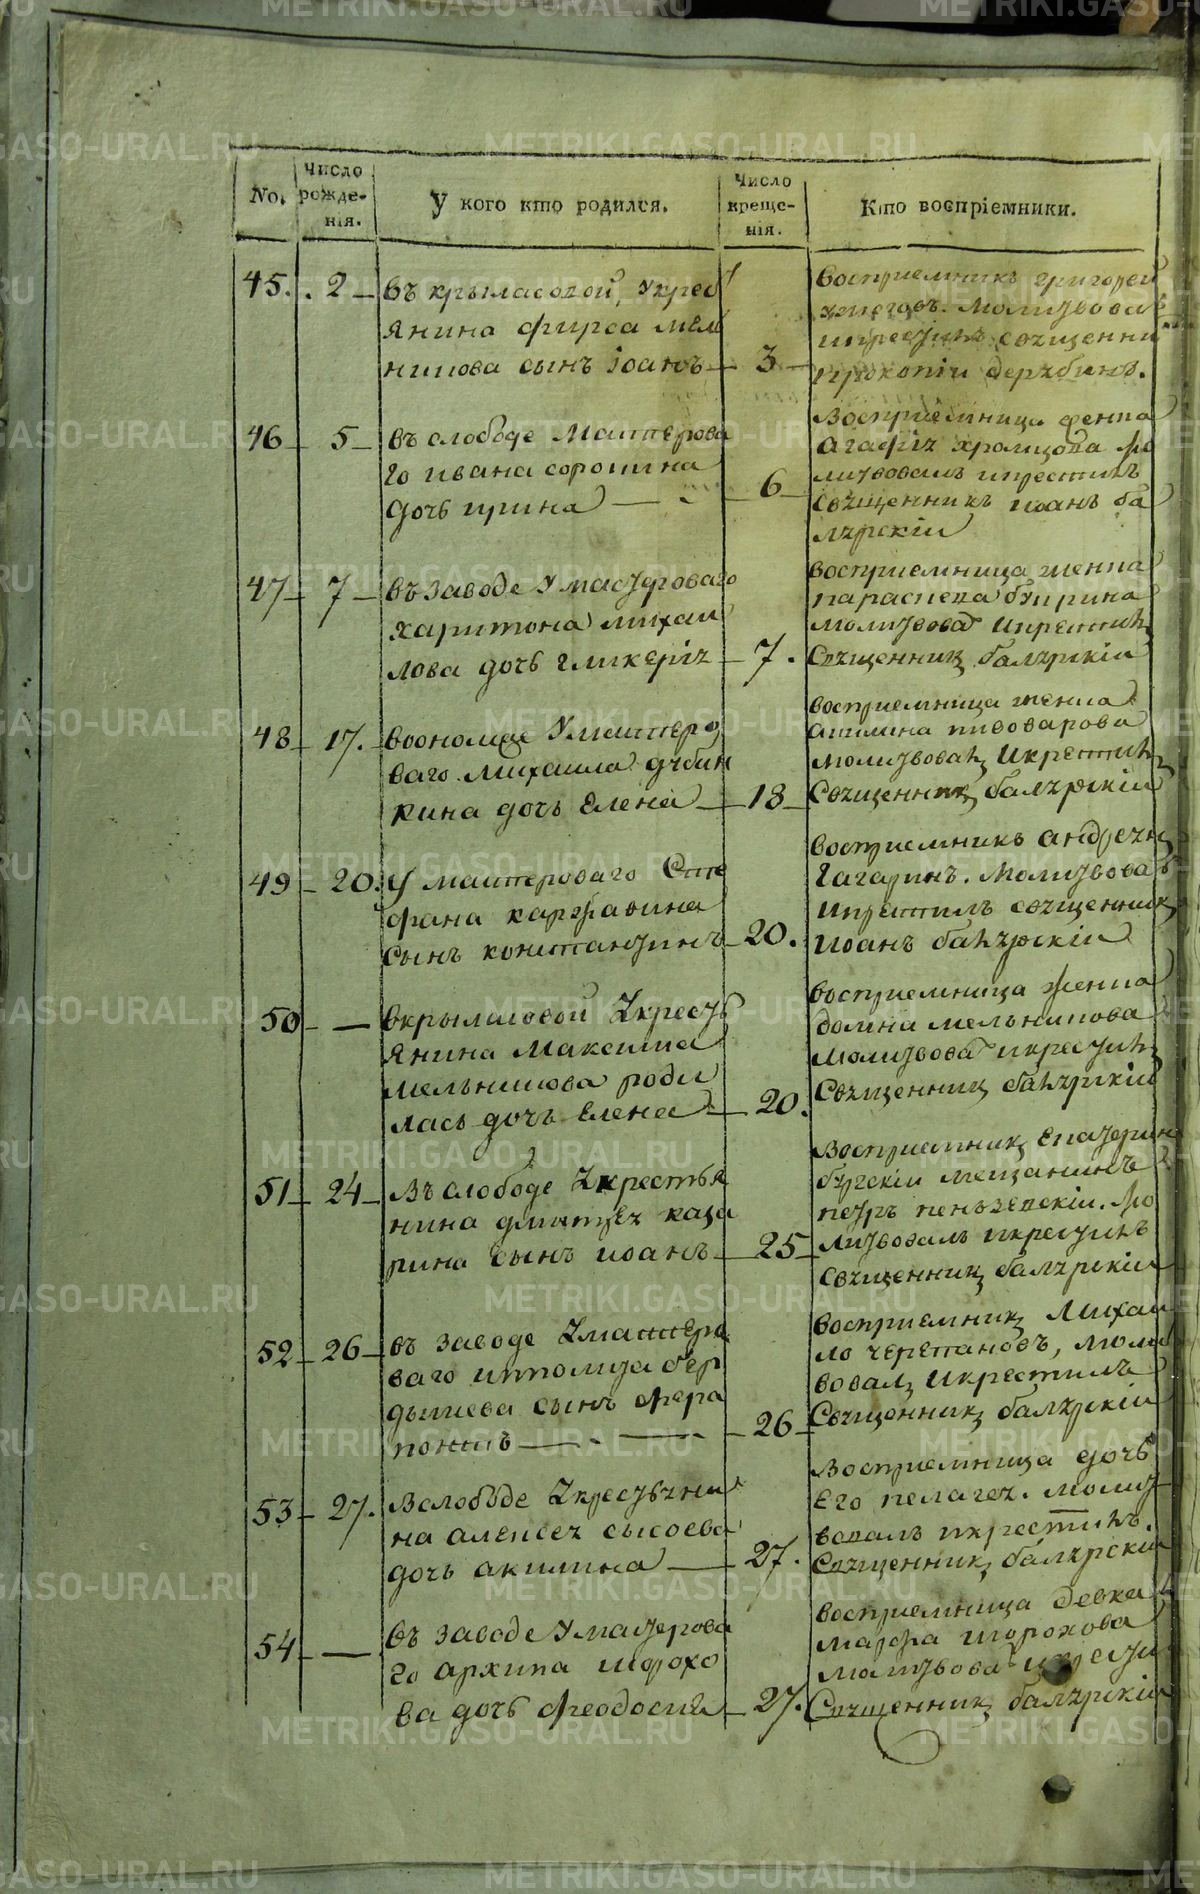 No.
Число рожде-нія.
У кого кто родился.
Число креще-нія.
Кто воспріемники.
45.
2
въ крыласовой, У крес
янина фирса мел
никова сынъ іоанъ
3
Восприемникъ григорей
молитвова
икрестилъ свящённи
прокопіи дерябинъ.
46
5
въ слободе Мастерова
го ивана сорокина
дочь ирина
6
Восприемница женка
Агафія хромцова мо
литвовалъ икрестилъ
Священникъ иоанъ ба
лярскіи
47
7
въ заводе У мастероваго
харитона михаи
лова дочь гликерія
7.
восприемница женка
параскева
молитвова Икрестилъ
Священник балярскіи
48
17.
воономже У мастеро
ваго Михаила дубин
кина дочь Елена
18
восприемница женка
акилина пивоварова
молитвовал Икрестилъ
Священник балярскіи
49
20.
У мастероваго Сте
фана каргавина
сынъ константинъ
20.
восприемникъ андреян
Гагаринъ. Молитвова
Икрестилъ священник
иоанъ балярскіи
50
вкрыласовой У кресть
янина Максима
мельникова роди
лась дочь Елена
20.
восприемница женка
домна мельникова
Молитвова икрестилъ
Священник балярскіи
51
24
Въ слободе У крестья
нина дмитрея каца
рина сынъ иоанъ
25
Восприемник Екатерин
бургскіи мещанинъ
петръ пеньзевскіи. Мо
литвовалъ икрестилъ
Священник балярскіи
52
26
въ заводе У мастеро
ваго
сынъ фера
понтъ
26
восприемник Михаи
ло черепановъ, моли
вовал Икрестилъ
Священник балярскіи
53
27.
Вслободе У крестьяни
на алексея сысоева
дочь акилина
27.
Восприемница дочь
Его пелагея. молит
вовалъ икрестилъ.
Священник балярскіи
54
въ заводе У мастерова
го архипа шорохо
ва дочь феодосия
27.
восприемница девка
марфа шорохова
молитвова икрести
Священник балярскіи
METRIKI.GASO-URAL.RU